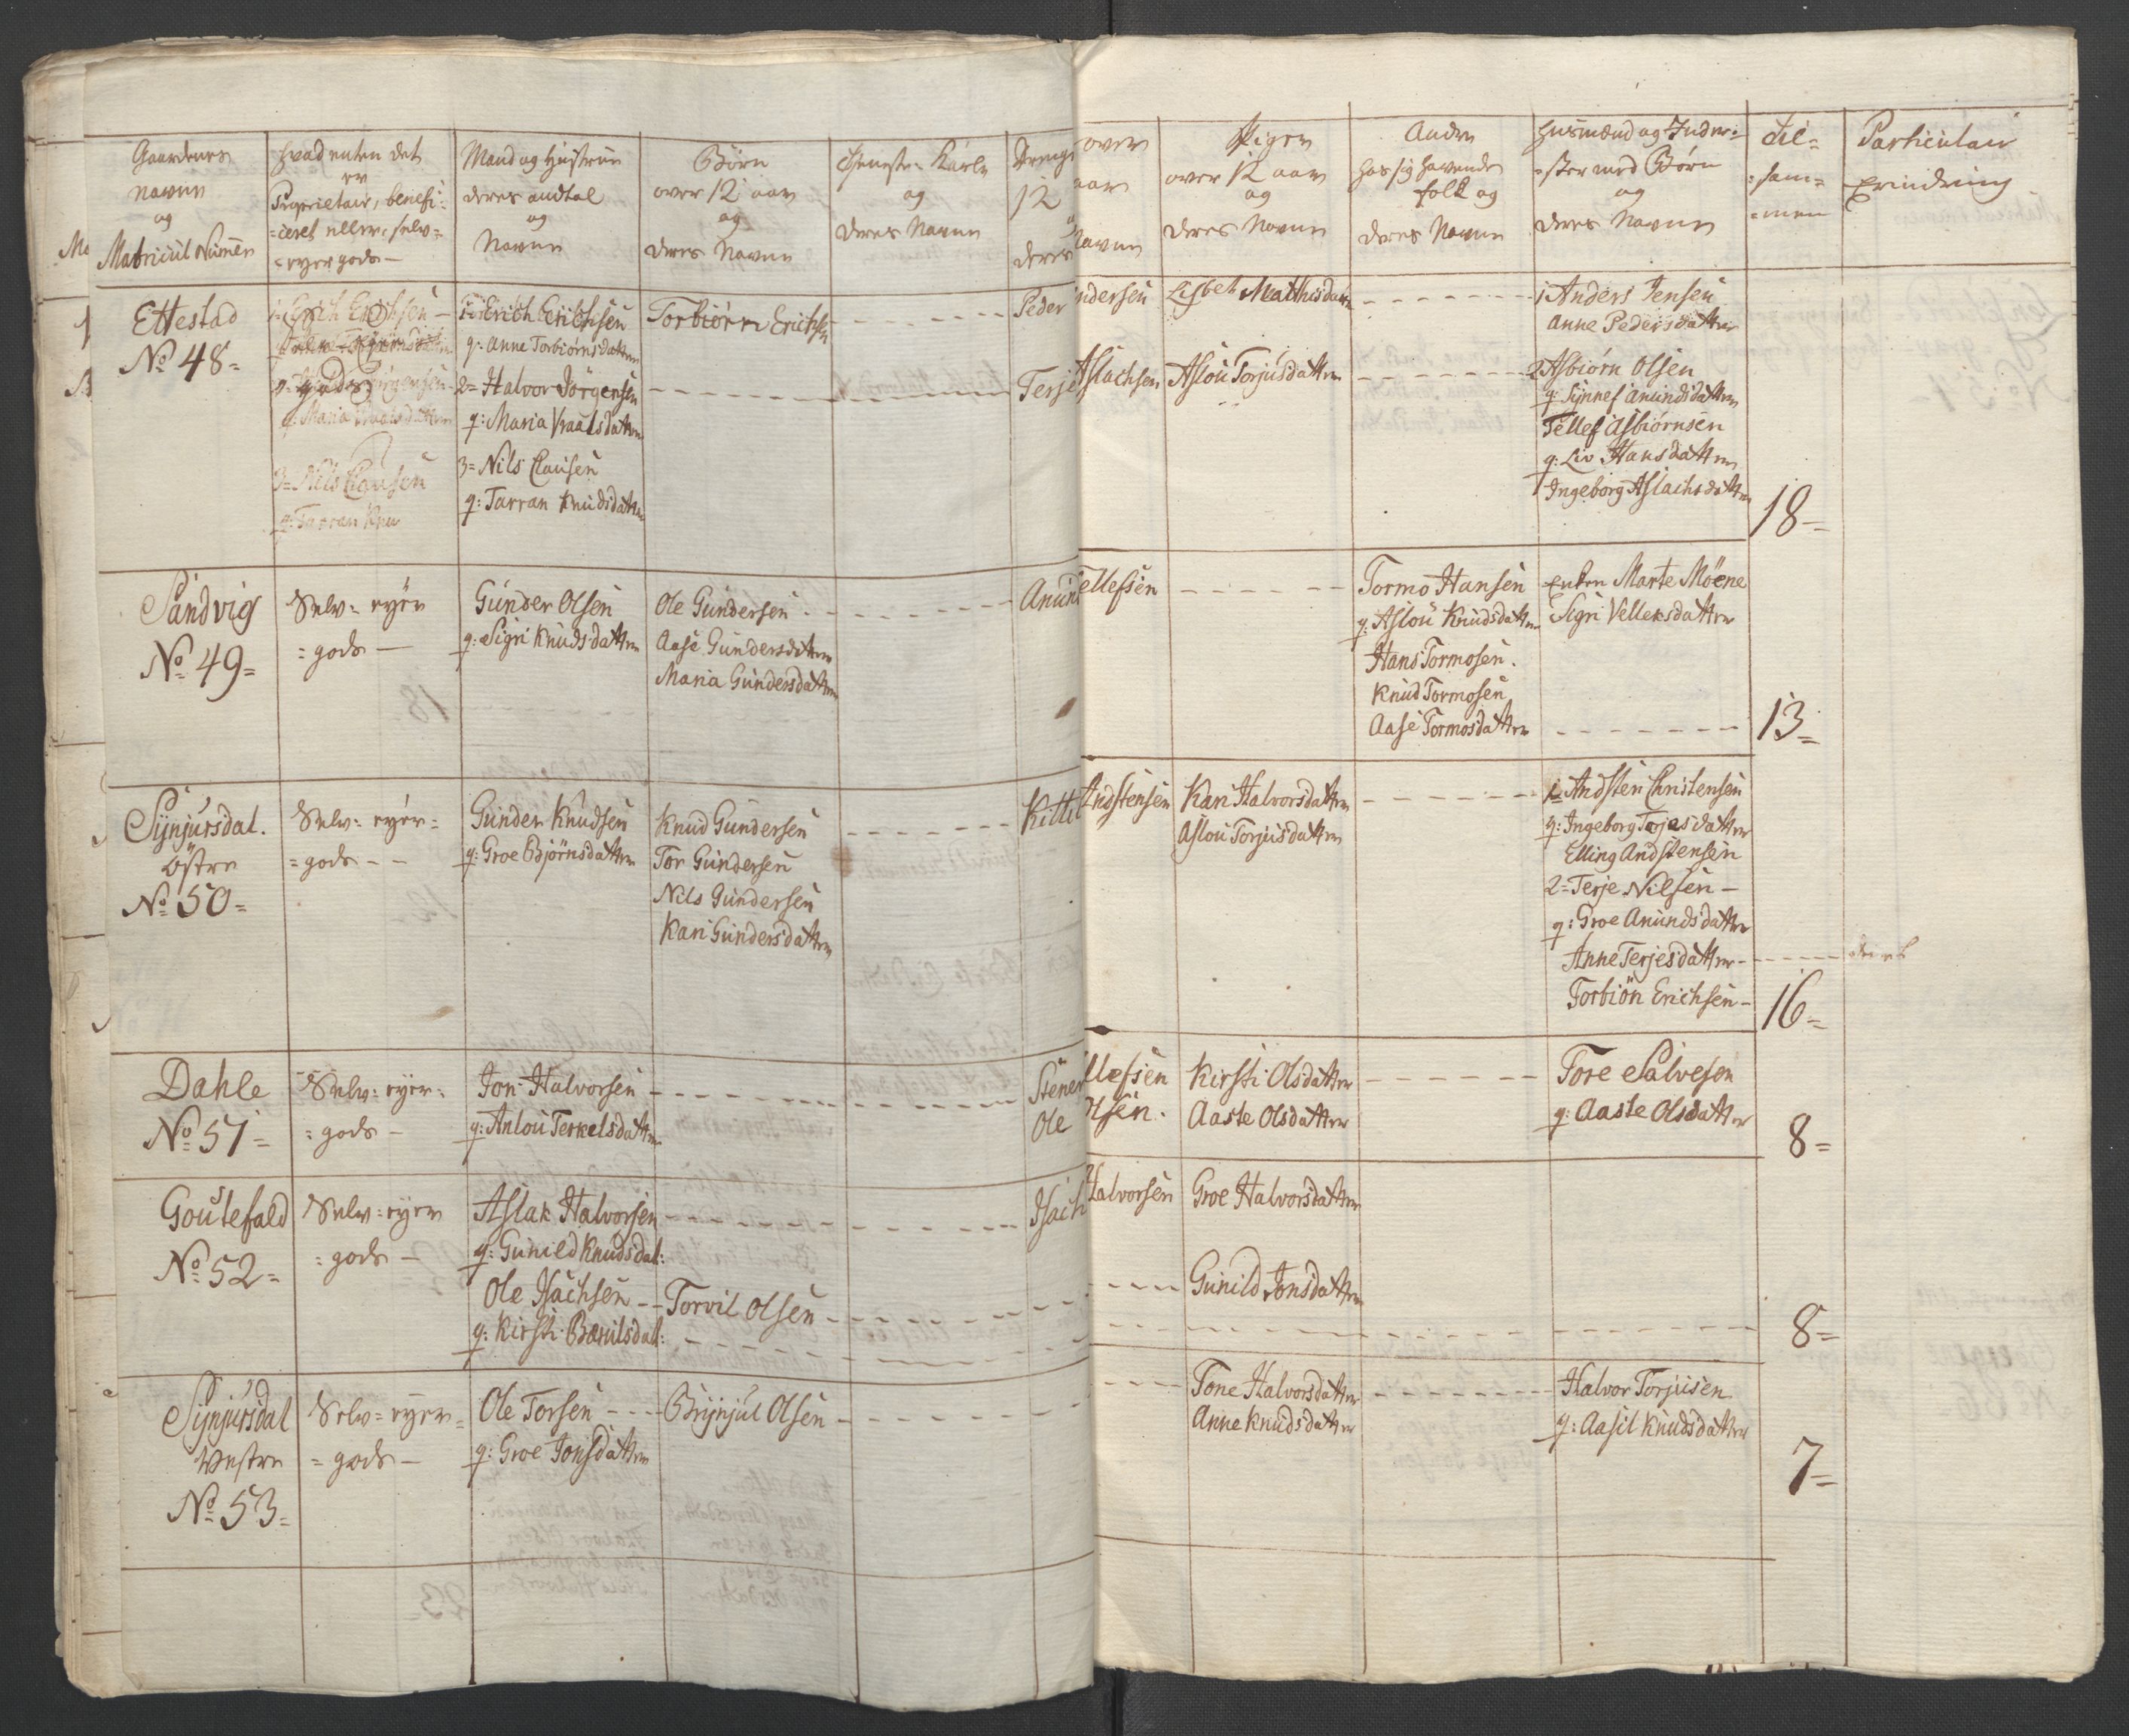 Gaardenes
Navne
og
Matricul Numer
Hvad enten det
er
Proprietair, benefi-
ceret eller selv-
eyergods
Mand og Hustrue
deres andtal
og
Navne
Børn
over 12 aar
og
deres Navne
Tieneste Karle
og
deres Navne
Drenge
12
deres
over
aar
Navne
Piger
over 12 aar
og
deres Navne
Andre
hos sig havende
folk og
deres Navne
Husmænd og Inder-
ster med Børn
og
deres Navne
til-
sam-
men
Particulair
Erindring
Ettestad
No 48=
1= Erich Erichsen
q: Anne Torbiørnsdatter
2= Halvor Jørgensen
q: Maria Vraalsdatter
3= Nils Clausen
q: Tarran Knudsdatter
3= Nils Clausen
q: Tarran Knu
Torbiörn Erichsen
Peder
Terje
Andersen
Aslachsen
Lisbet Mathisdatter
Aslou Torjusdatter
1 Anders Jensen
Anne Pedersdatter
2 Asbiørn Olsen
q: Synnef Anundsdatter
Tellef Asbiørnsen
q: Liv Hansdatter
Ingeborg Aslachsdatter
18=
Sandvig
No 49=
Selv= eyer
= gods
Gunder Olsen
q: Sigri Knudsdatter
Ole Gundersen
Aase Gundersdatter
Maria Gundersdatter
Anun
Tellefsen
Tormo Hansen
q: Aslou Knudsdatter
Hans Tormosen
Knud Tormosen
Aase Tormosdatter
Enken Marte Möene
Sigri Velleksdatter
13=
Synjursdal
östre
No 50=
Selv= eyer=
= gods
Gunder Knudsen
q: Groe Bjørnsdatter
Knud Gundersen
Tor Gundersen
Nils Gundersen
Kari Gundersdatter
Kittil
Andstensen
Kari Halvorsdatter
Aslou Torjusdatter
1= Andsten Christensen
q: Ingeborg Terjesdatter
Elling Andstensen
2= Terje Nilsen
q: Groe Anundsdatter
Anne Terjesdatter
Torbiön Erichsen
16=
Dahle
No 51=
Selv= eyer=
= gods
Jon Halvorsen
q: Anlou Terkelsdatter
Stener
Ole
Ellefsen
Olsen.
Kirsti Olsdatter
Aaste Olsdatter
Tore Salvesen
q: Aaste Olsdatter
8=
Goustefald
No 52=
Selv= eyer
= gods
Aslak Halvorsen
q: Gunild Knudsdat:
Ole Isachsen
q: Kirsti Bærulsdat:
Torvil Olsen
Isach
Halvorsen
Groe Halvorsdatter
Gunild Jonsdatter
8=
Synjursdal
Westre
No 53=
Selv= eyer=
= gods
Ole Torsen
q: Groe Jonsdatter
Brynjul Olsen
Tone Halvorsdatter
Anne Knudsdatter
Halvor Torjusen
q: Aasil Knudsdatter
7=